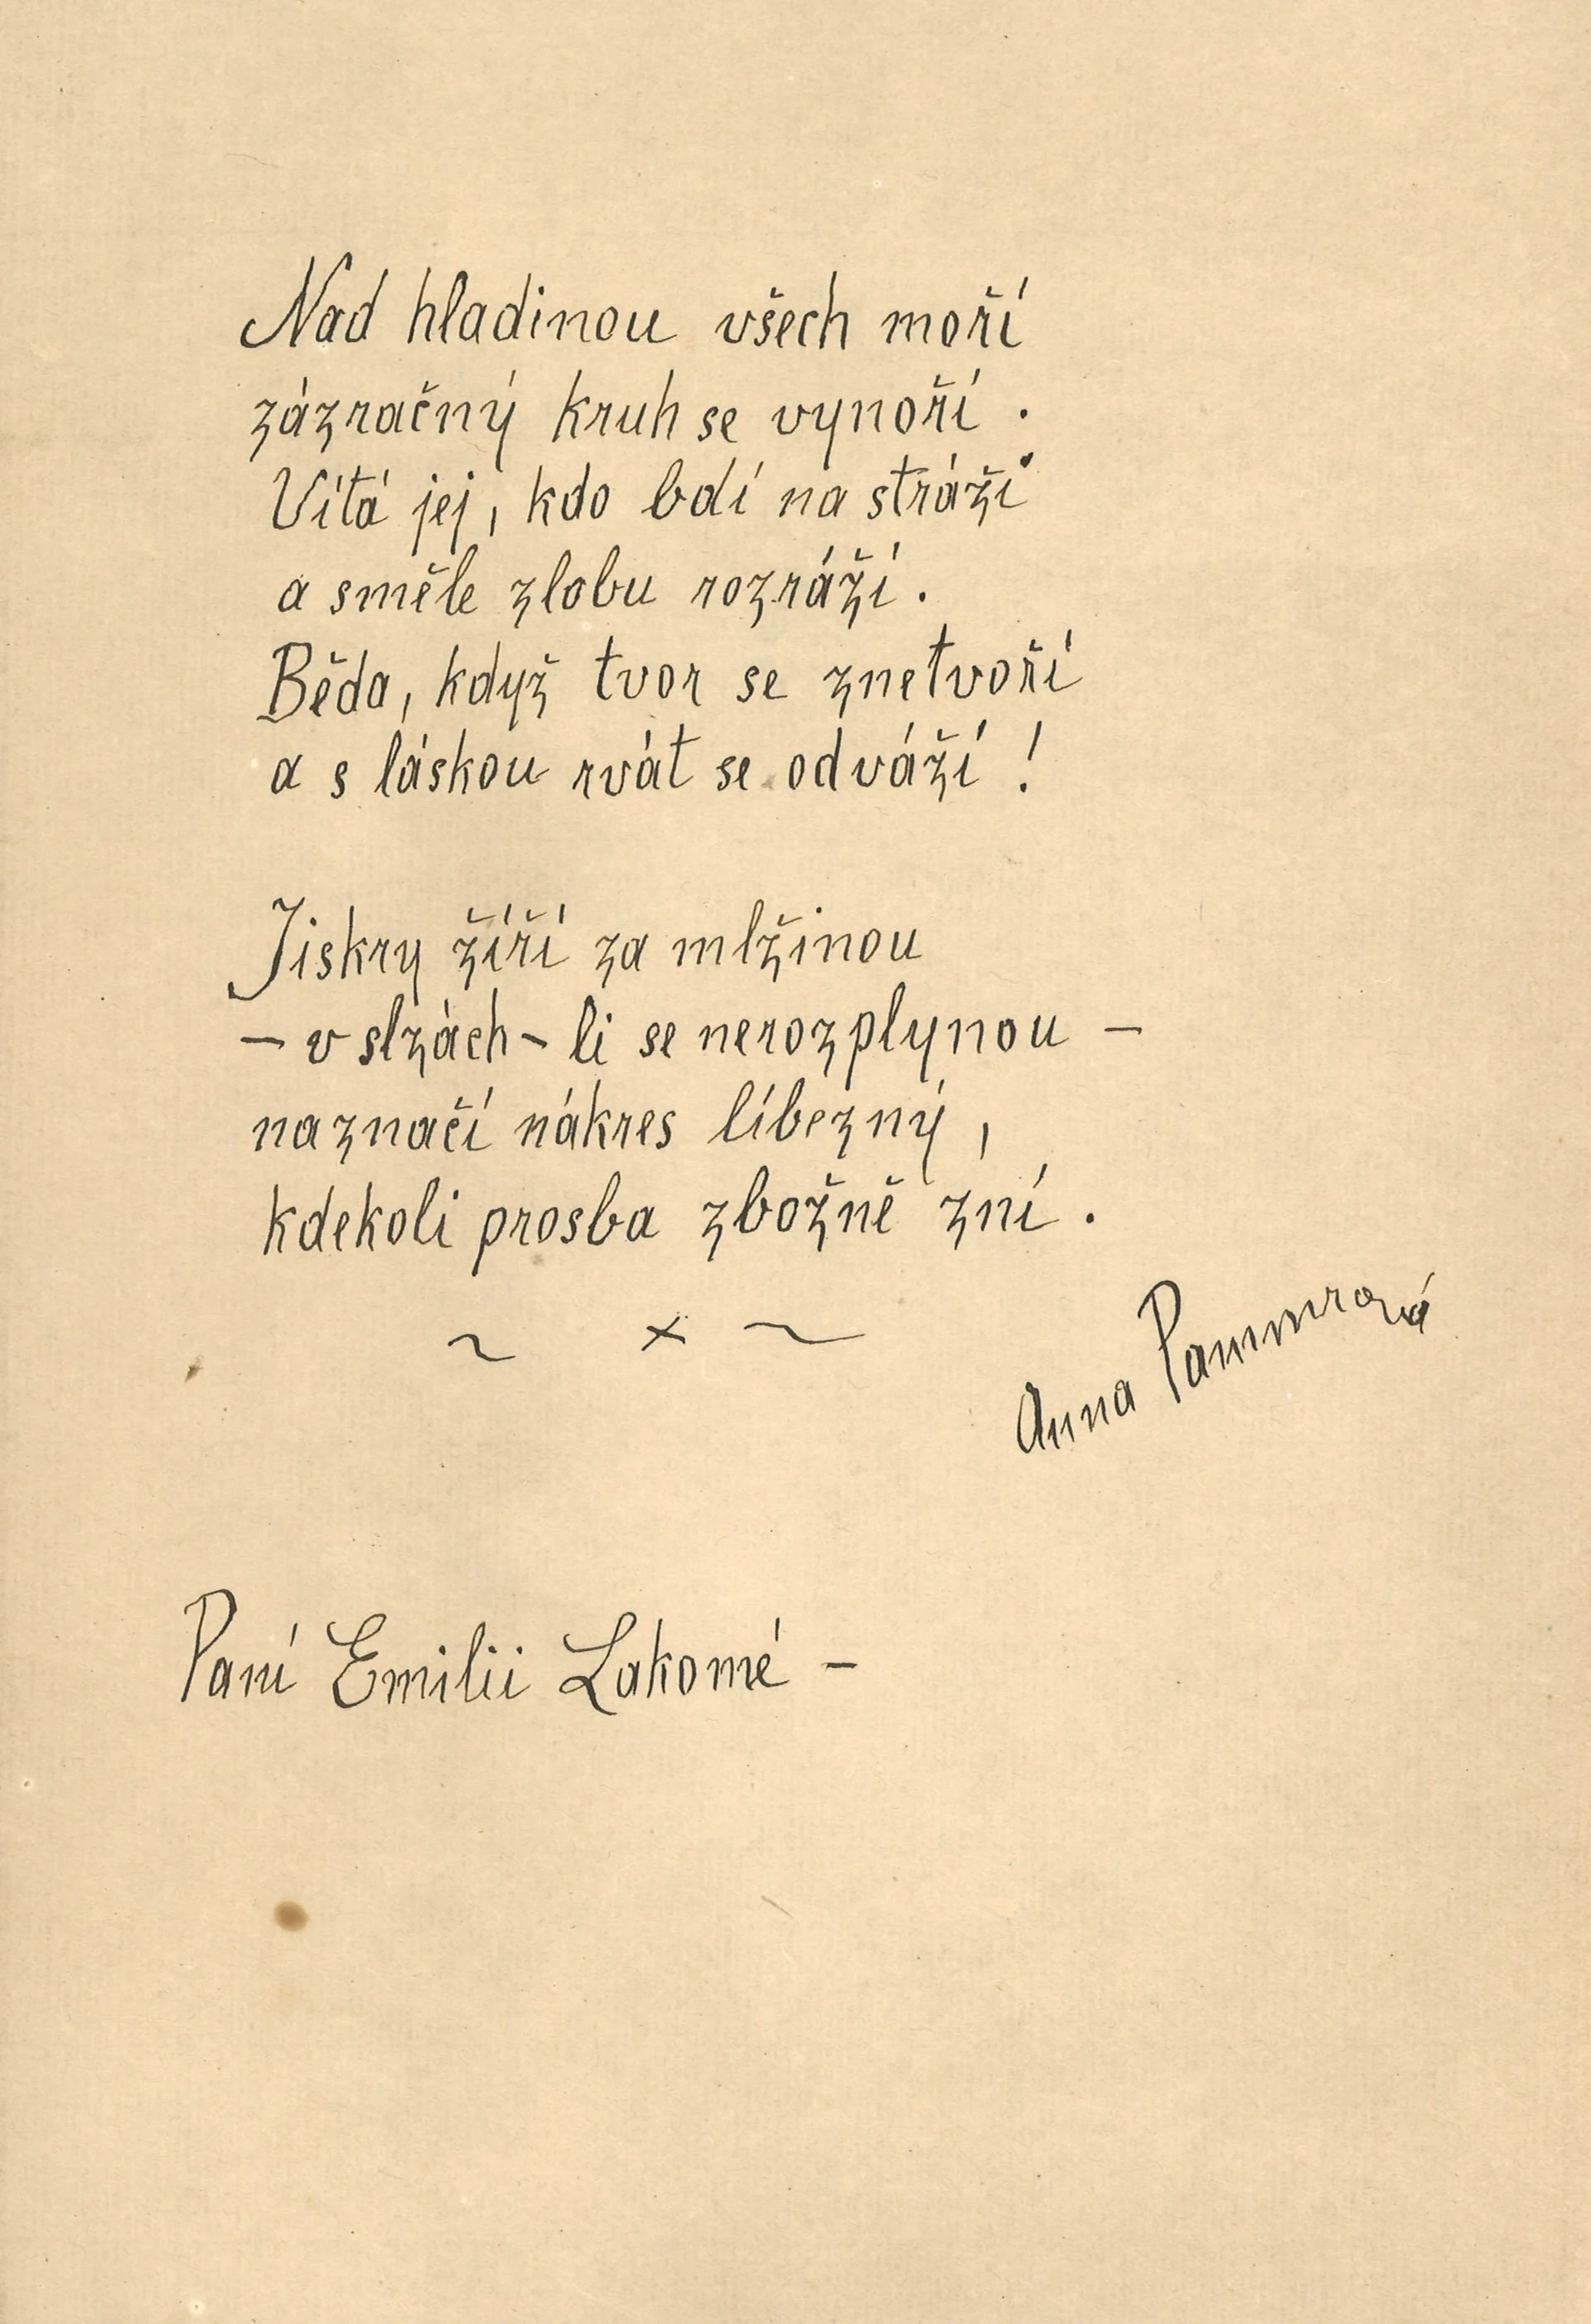 Nad hladinou všech moří
zázračný kruh se vynoří.
Vítá jej, kdo bdí na stráži
a směle zlobu rozráží.
Běda, když tvor se znetvoří
a s láskou rvát se odváží!
Jiskry žíří za mlžinou
– v slzách-li se nerozplynou –
naznačí nákres líbezný,
kdekoli prosba zbožně zní.
~ x ~
Anna Pammrová
Paní Emilii Lakomé –